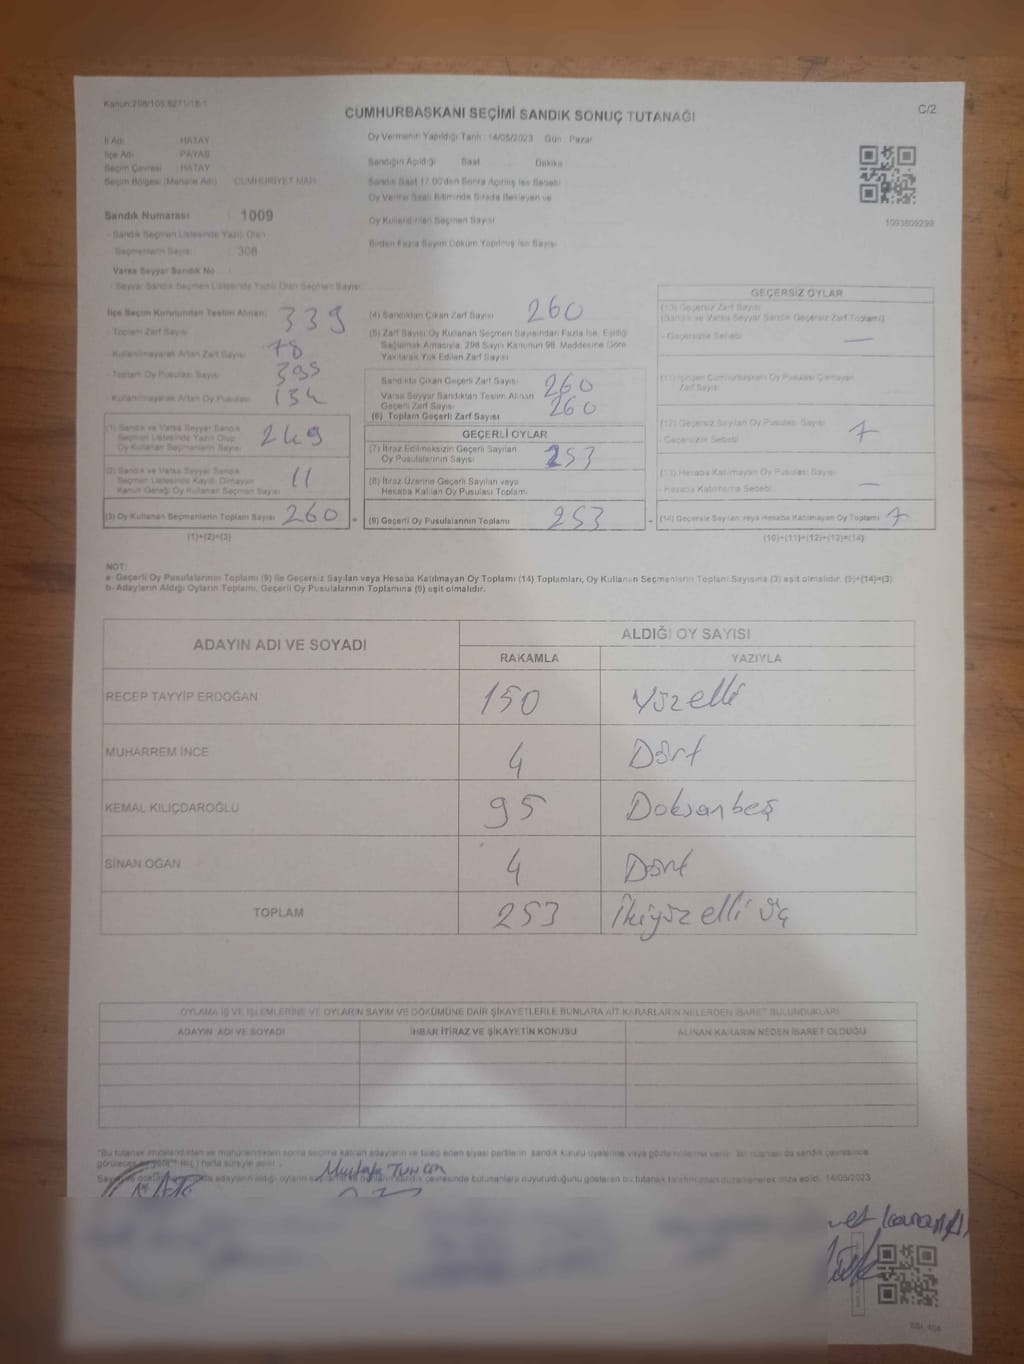 Kanun:298/105,6271/18-1
C/2
CUMHURBAŞKANI SEÇİMİ SANDIK SONUÇ TUTANAĞI
Oy Vermenin Yapıldığı Tarih : 14/05/2023 Gün : Pazar
İl Adı : HATAY
İlçe Adı : PAYAS
Seçim Çevresi : HATAY
Seçim Bölgesi (Mahalle Adı) : CUMHURİYET MAH.
Sandığın Açıldığı Saat Dakika
Sandık Saat 17.00'den Sonra Açılmış İse Sebebi
Oy Verme Saati Bitiminde Sırada Bekleyen ve
Oy Kullandırılan Seçmen Sayısı
Birden Fazla Sayım Döküm Yapılmış İse Sayısı
1093809299
Sandık Numarası : 1009
- Sandık Seçmen Listesinde Yazılı Olan
Seçmenlerin Sayısı : 308
Varsa Seyyar Sandık No :
- Seyyar Sandık Seçmen Listesinde Yazılı Olan Seçmen Sayısı:
İlçe Seçim Kurulundan Teslim Alınan;
- Toplam Zarf Sayısı 339
- Kullanılmayarak Artan Zarf Sayısı 78
- Toplam Oy Pusulası Sayısı
- Kullanılmayarak Artan Oy Pusulası
(1) Sandık ve Varsa Seyyar Sandık
Seçmen Listesinde Yazılı Olup
Oy Kullanan Seçmenlerin Sayısı 249
(2) Sandık ve Varsa Seyyar Sandık
Seçmen Listesinde Kaydı Olmayan
Kanun Gereği Oy Kullanan Seçmen Sayısı 11
(3) Oy Kullanan Seçmenlerin Toplam Sayısı 260
(1)+(2)=(3)
(4) Sandıktan Çıkan Zarf Sayısı 260
(5) Zarf Sayısı Oy Kullanan Seçmen Sayısından Fazla İse, Eşitliği
Sağlamak Amacıyla, 298 Sayılı Kanunun 98. Maddesine Göre
Yakılarak Yok Edilen Zarf Sayısı
Sandıkta Çıkan Geçerli Zarf Sayısı 260
Varsa Seyyar Sandıktan Teslim Alınan
Geçerli Zarf Sayısı
(6) Toplam Geçerli Zarf Sayısı 260
GEÇERLİ OYLAR
(7) İtiraz Edilmeksizin Geçerli Sayılan
Oy Pusulalarının Sayısı 253
(8) İtiraz Üzerine Geçerli Sayılan veya
Hesaba Katılan Oy Pusulası Toplamı
= (9) Geçerli Oy Pusulalarının Toplamı 253
GEÇERSİZ OYLAR
(10) Geçersiz Zarf Sayısı
(Sandık ve Varsa Seyyar Sandık Geçersiz Zarf Toplamı)
- Geçersizlik Sebebi —
(11) İçinden Cumhurbaşkanı Oy Pusulası Çıkmayan
Zarf Sayısı
(12) Geçersiz Sayılan Oy Pusulası Sayısı 7
- Geçersizlik Sebebi
(13) Hesaba Katılmayan Oy Pusulası Sayısı
- Hesaba Katılmama Sebebi —
+ (14) Geçersiz Sayılan veya Hesaba Katılmayan Oy Toplamı 7
(10)+(11)+(12)+(13)=(14)
NOT:
a- Geçerli Oy Pusulalarının Toplamı (9) ile Geçersiz Sayılan veya Hesaba Katılmayan Oy Toplamı (14) Toplamları, Oy Kullanan Seçmenlerin Toplam Sayısına (3) eşit olmalıdır. (9)+(14)=(3)
b- Adayların Aldığı Oyların Toplamı, Geçerli Oy Pusulalarının Toplamına (9) eşit olmalıdır.
ADAYIN ADI VE SOYADI
ALDIĞI OY SAYISI
RAKAMLA YAZIYLA
RECEP TAYYİP ERDOĞAN 150 Yüzelli
MUHARREM İNCE 4 Dört
KEMAL KILIÇDAROĞLU 95 Doksanbeş
SİNAN OĞAN 4 Dört
TOPLAM 253 İkiyüzelli üç
OYLAMA İŞ VE İŞLEMLERİNE VE OYLARIN SAYIM VE DÖKÜMÜNE DAİR ŞİKAYETLERLE BUNLARA AİT KARARLARIN NELERDEN İBARET BULUNDUKLARI
ADAYIN ADI VE SOYADI İHBAR İTİRAZ VE ŞİKAYETİN KONUSU ALINAN KARARIN NEDEN İBARET OLDUĞU
Mustafa
14/05/2023